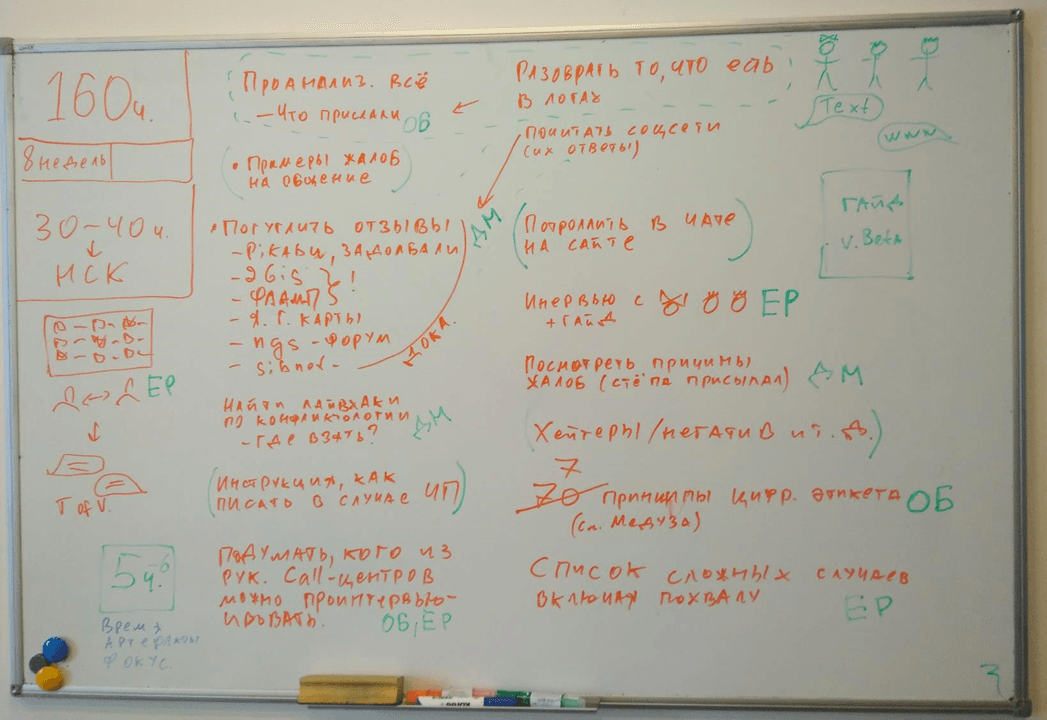 160 ч.
8 недель
30-40 ч.
НСК
ЕР
T of V.
5 ч.-6
Время
Артефакты
Фокус.
Проанализ. всё
— Что прислали ОБ
• Примеры жалоб
на общение
• Погуглить отзывы
- Pikабу, задолбали
- 2Gis } !
- Фламп
- Я. Г. карты
- ngs - форум
- sibnet -
дока.
ДМ
Найти лайвхаки
по конфликтологии
- где взять?
ДМ
(Инструкция, как
писать в случае ЧП)
Подумать, кого из
рук. Call-центров
можно проинтервью-
ировать.
ОБ, ЕР
Разобрать то, что есть
в логах
Почитать соцсети
(их ответы)
(Потроллить в чате
на сайте)
Инервью с ЕР
+ гайд
Посмотреть причины
жалоб (стёпа присылал) ДМ
(Хейтеры/негатив и т. д.)
7
70 принципы цифр. этикета ОБ
(см. Медуза)
Список сложных случаев
включая похвалу
ЕР
Text
www
Гайд
v. Beta